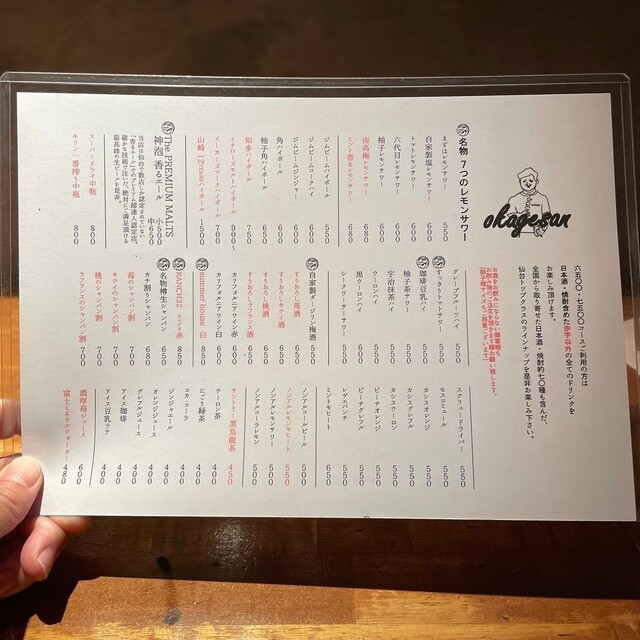 okagesan
六五〇〇・七五〇〇コースご利用の方は
日本酒・焼酎含めた赤字以外の全てのドリンクを
お楽しみ頂けます。
全国から取り寄せた日本酒・焼酎約七〇種も含んだ、
仙台トップクラスのラインナップを是非お楽しみ下さい。
名物 7つのレモンサワー
まずはレモンサワー 550
自家製塩レモンサワー 600
トマトレモンサワー 650
六代目レモンサワー 650
柚子レモンサワー 650
南高梅レモンサワー 680
ミント香るレモンサワー 680
ジムビームハイボール 550
ジムビームコークハイ 550
ジムビームジンジャー 550
角ハイボール 600
柚子角ハイボール 650
知多ハイボール 750
イチローズモルトハイボール 900
メーカーズマークハイボール 700
山崎 12YEARSハイボール 1500
The PREMIUM MALTS
神泡 香るエール 小500
中650
当店は仙台で数店しか認定されていない
「香るエール」でのプレミアム超達人認定店。
確かな技術で注いだ、絶対にご満足頂ける
最高峰の生ビールを是非。
スーパードライ中瓶 800
キリン一番搾り中瓶 800
お酒をお飲みにならない御客様も
お飲み物をご注文を頂きます様お願い致します。
グレープフルーツハイ 550
すっきりトマトサワー 550
珈琲豆乳ハイ 550
柚子茶サワー 550
宇治抹茶ハイ 550
ウーロンハイ 500
黒ウーロンハイ 550
シークワーサーサワー 550
自家製ダージリン梅酒 550
すりおろし苺酒 650
すりおろしキウイ酒 650
すりおろし桃酒 650
すりおろしラフランス酒 650
カリフォルニアワイン赤 600
カリフォルニアワイン白 600
summer house 白 850
RANCH32 赤 850
名物樽生シャンパン 650
カチ割りシャンパン 680
苺のシャンパン割 700
キウイのシャンパン割 700
桃のシャンパン割 700
ラフランスのシャンパン割 700
スクリュードライバー 550
モスコミュール 550
カシスオレンジ 550
カシスグレフル 550
カシスウーロン 550
ピーチオレンジ 550
ピーチグレフル 550
レゲエパンチ 550
ミントモヒート 550
ノンアルコールビール 500
ノンアルレモンモヒート 550
ノンアルレモンサワー 500
ノンアルコーラレモン 500
サントリー黒烏龍茶 450
ウーロン茶 400
にごり緑茶 400
コカ・コーラ 400
ジンジャエール 400
オレンジジュース 400
グレフルジュース 400
アイス珈琲 400
アイス豆乳ラテ 400
濃厚苺ジュース 600
富士ミネラルウォーター 480